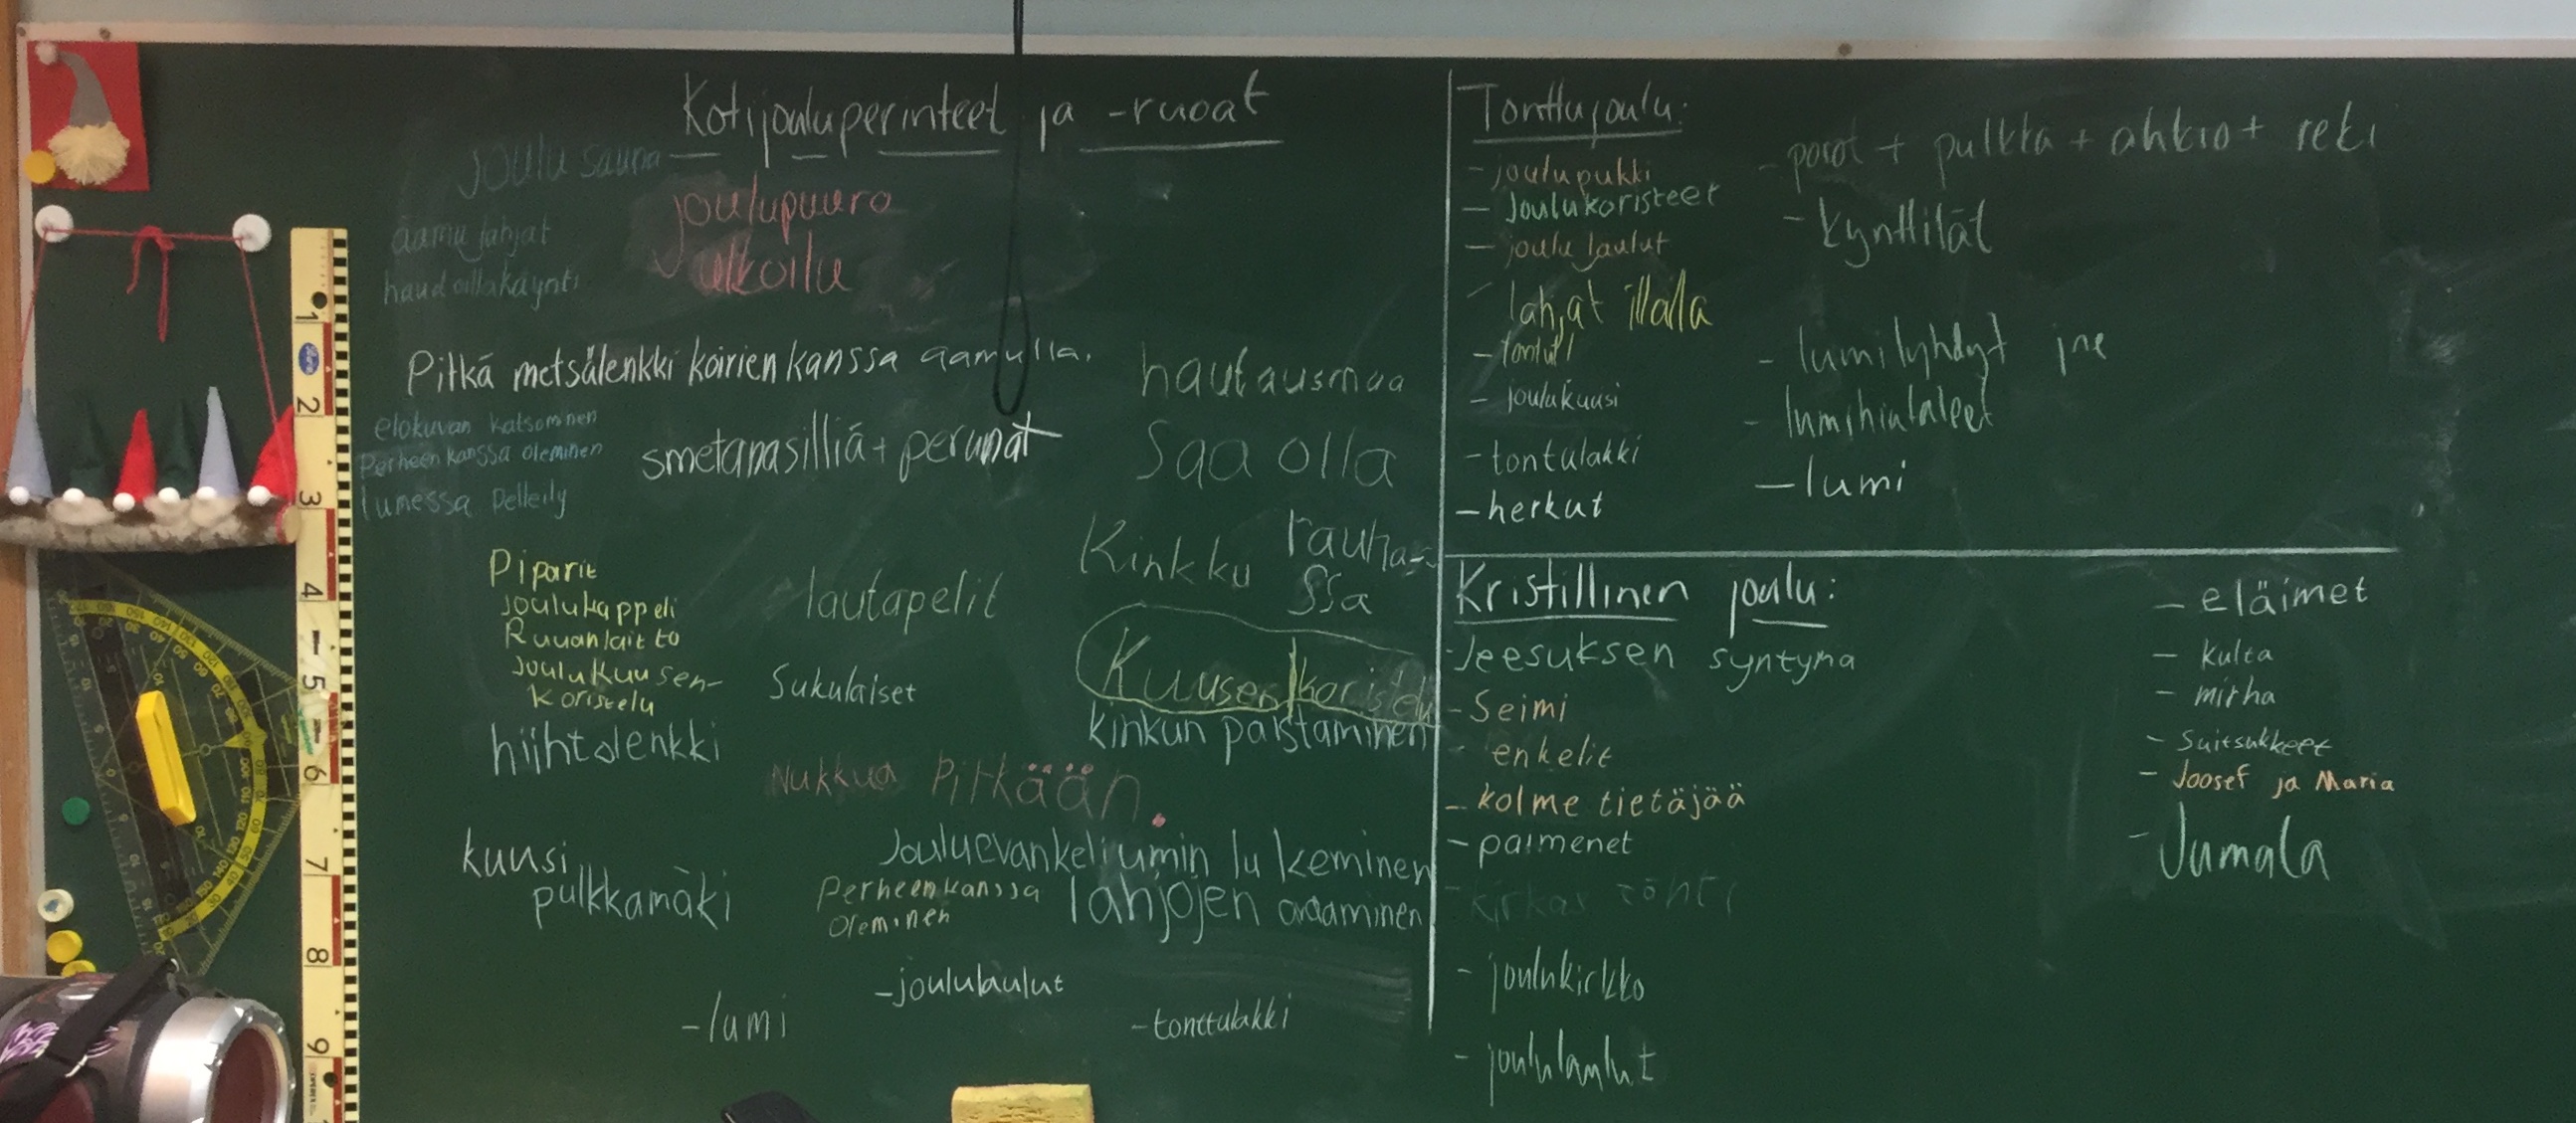 Kotijouluperinteet ja -ruoat
Joulu sauna
joulupuuro
ulkoilu
aamu lahjat
haudallakäynti
Pitkä metsälenkki koirien kanssa aamulla.
hautausmaa
elokuvan katsominen
Perheen kanssa oleminen
lumessa pelleily
smetanasilliä + perunat
Saa olla
rauha-
ssa
Kinkku
Piparit
Ruuanlaitto
Joulukuusen-
koristelu
lautapelit
Kuusen koristelu
Sukulaiset
kinkun paistaminen
hiihtolenkki
Nukkua Pitkään.
kuusi
pulkkamäki
Jouluevankeliumin lukeminen
Perheen kanssa
oleminen
lahjojen avaaminen
-joululaulut
-lumi
-tonttulakki
Tonttujoulu:
- joulupukki
- Joulukoristeet
- joulu laulut
- lahjat illalla
- tontut
- joulukuusi
- tontulakki
- herkut
- porot + pulkka + ahkio + reki
- kynttilät
- lumilyhdyt jne
- lumihiutaleet
- lumi
Kristillinen joulu:
- Jeesuksen syntymä
- Seimi
- enkelit
- kolme tietäjää
- paimenet
- kirkas tähti
- joulukirkko
- joululaulut
- eläimet
- kulta
- mirha
- Suitsukkeet
- Joosef ja Maria
- Jumala
1
2
3
4
5
6
7
8
9